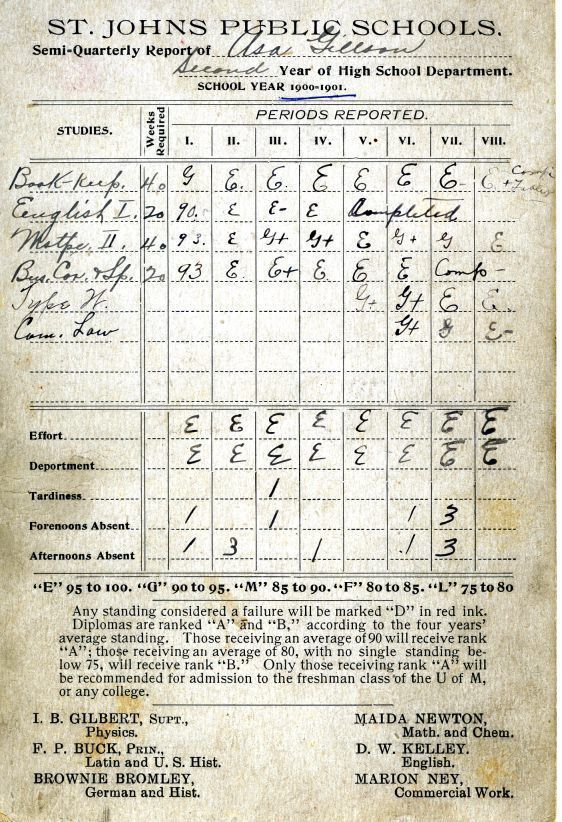 ST. JOHNS PUBLIC SCHOOLS.
Semi-Quarterly Report of Asa Gillson
Second Year of High School Department.
SCHOOL YEAR 1900-1901.
STUDIES. Weeks Required PERIODS REPORTED.
I. II. III. IV. V. VI. VII. VIII.
Book-Keep. 40 G E E E E E E- E +
English I. 20 90. E E- E Completed
Mathe. II. 40 93. E G+ G+ E G+ G E
Bus. Cor. & Sp. 20 93 E E+ E E E Comp-
Type W. G+ G+ E E.
Com. Law G+ G E-
Effort E E E E E E E E
Department E E E E E E E E
Tardiness 1
Forenoons Absent 1 1 1 3
Afternoons Absent 1 3 1 1 3
"E" 95 to 100. "G" 90 to 95. "M" 85 to 90. "F" 80 to 85. "L" 75 to 80
Any standing considered a failure will be marked "D" in red ink.
Diplomas are ranked "A" and "B," according to the four years'
average standing. Those receiving an average of 90 will receive rank
"A"; those receiving an average of 80, with no single standing be-
low 75, will receive rank "B." Only those receiving rank "A" will
be recommended for admission to the freshman class of the U of M,
or any college.
I. B. GILBERT, SUPT., MAIDA NEWTON,
Physics. Math. and Chem.
F. P. BUCK, PRIN., D. W. KELLEY.
Latin and U. S. Hist. English.
BROWNIE BROMLEY, MARION NEY,
German and Hist. Commercial Work.